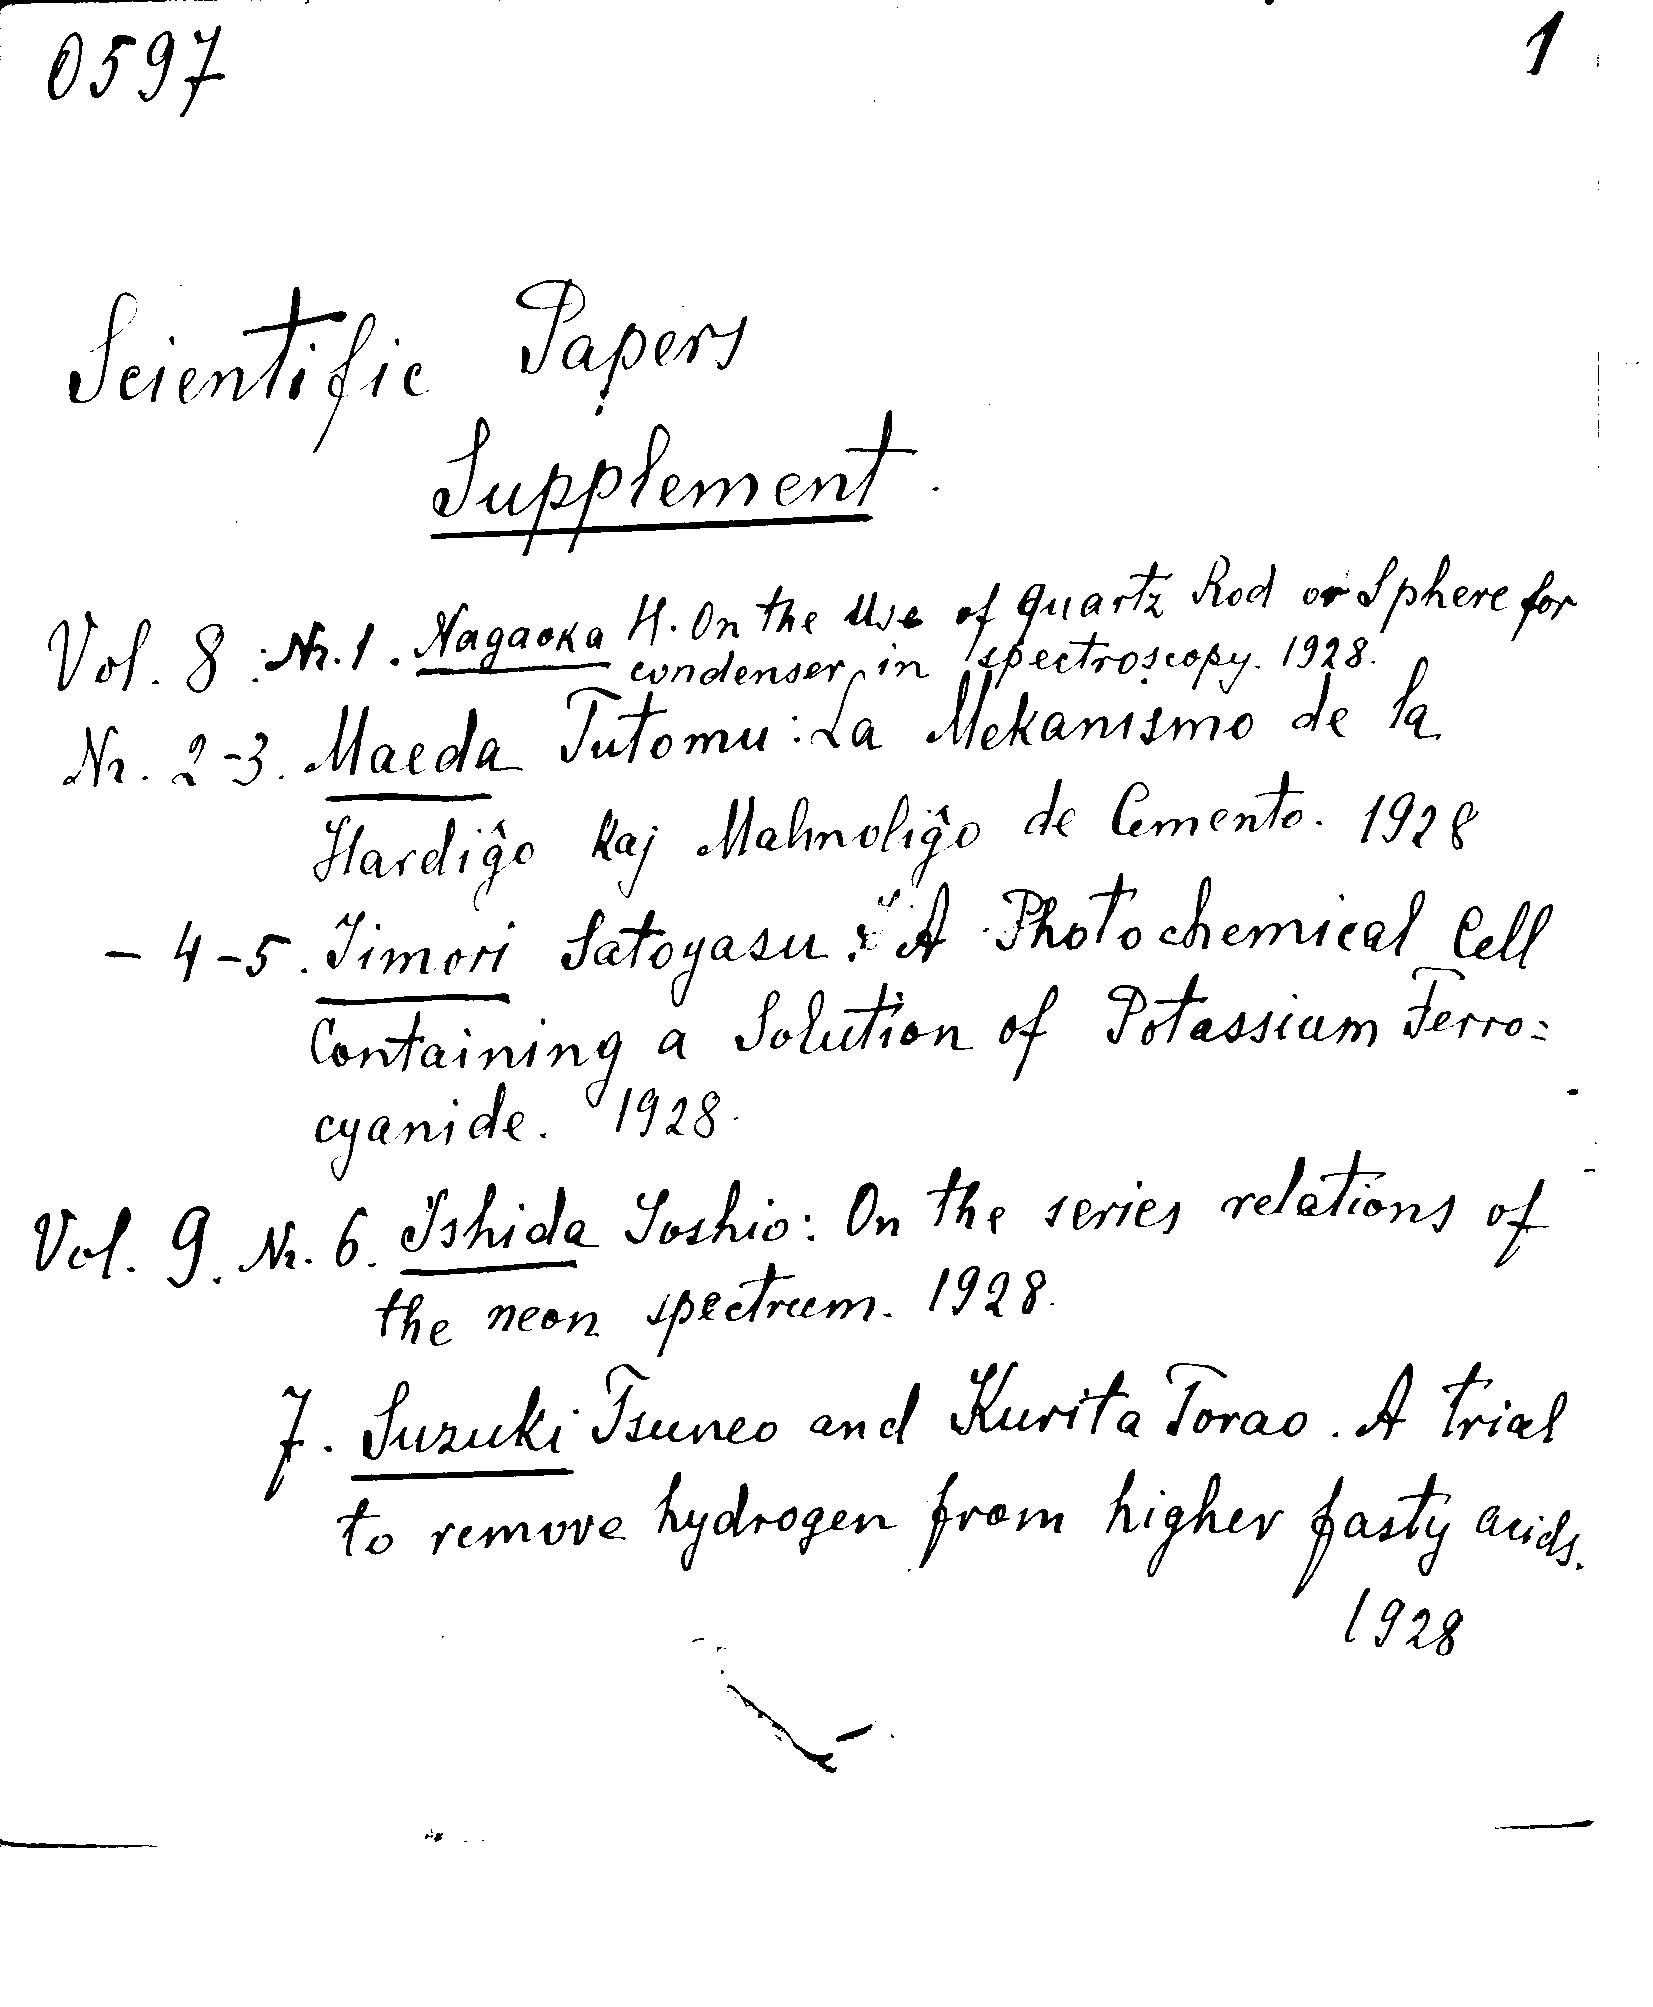 0597
1
Scientific Papers
Supplement.
Vol. 8: Nr. 1. Nagaoka H. On the Use of quartz Rod or Sphere for
condenser in spectroscopy. 1928.
Nr. 2-3. Maeda Tutomu: La Mekanismo de la
Hardiĝo kaj Malmoliĝo de Cemento. 1928
- 4-5. Iimori Satoyasu: A Photochemical Cell
Containing a Solution of Potassium Ferro=
cyanide. 1928.
Vol. 9. Nr. 6. Ishida Yoshio: On the series relations of
the neon spectrum. 1928.
7. Suzuki Tsuneo and Kurita Torao. A trial
to remove hydrogen from higher fasty acids.
1928